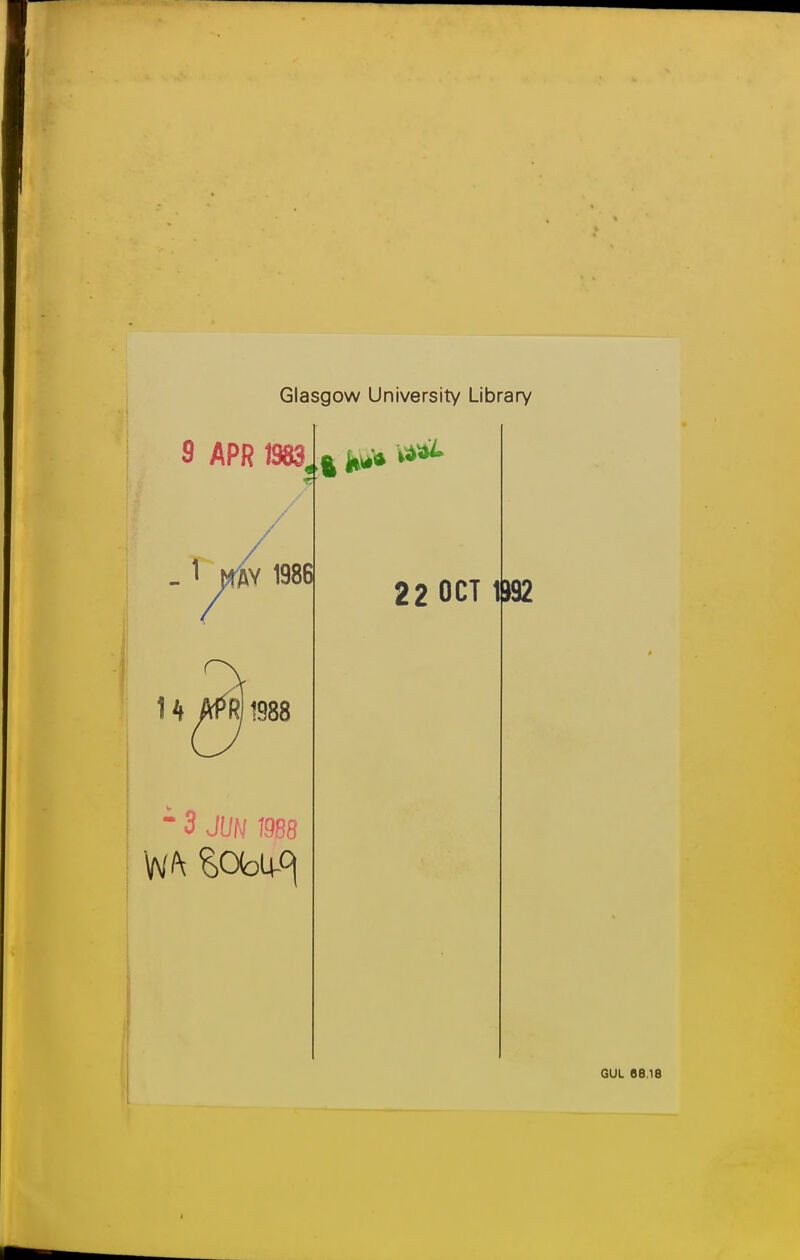 Glasgow University Library
9 APR 1983
- 1 MAY 1986
14 APR 1988
- 3 JUN 1988
WA 80649
22 OCT 1992
GUL 68.18